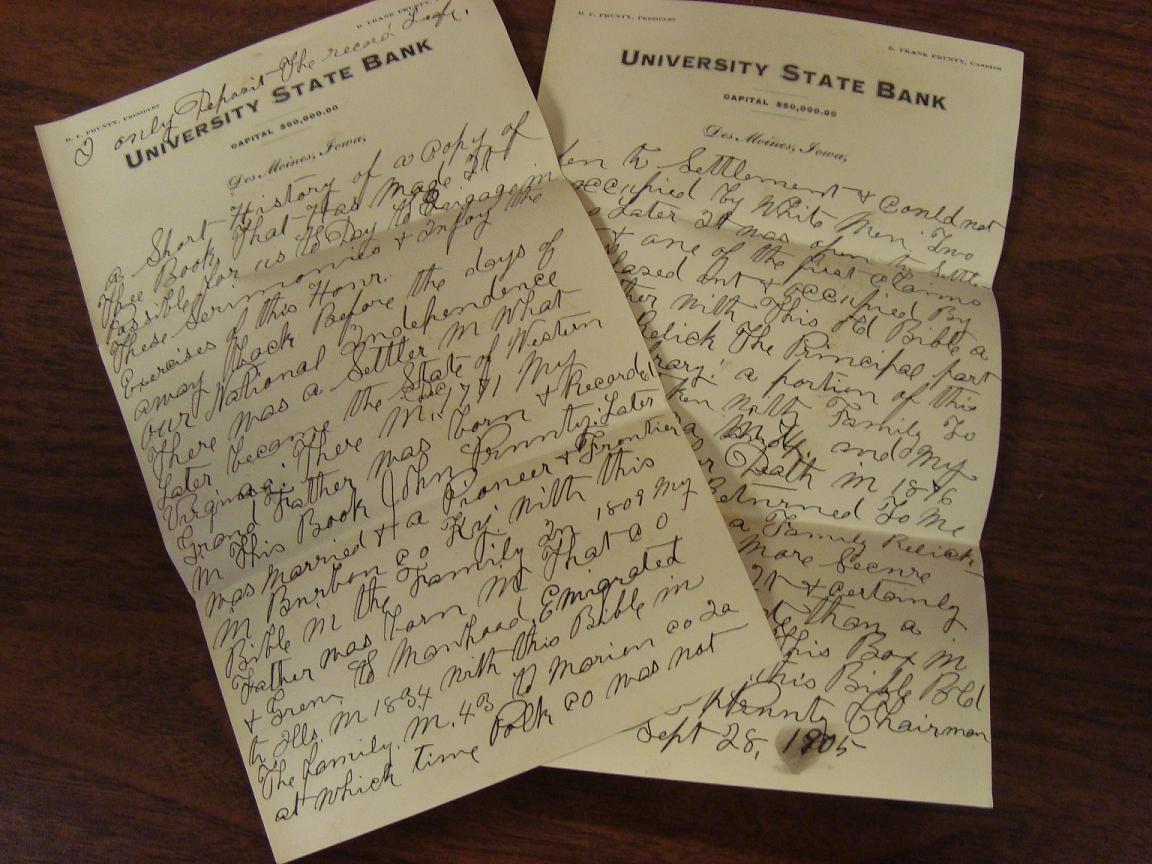 H. T. PRUNTY, PRESIDENT
B. FRANK PRUNTY,
I only Deposit the record Leaf,
UNIVERSITY STATE BANK
CAPITAL $50,000.00
Des Moines, Iowa,
A Short History of a Copy of
Thee Book, That Has Made It
Possible for us to Day to Engage in
These Serimonies & Enjoy the
Exercises of this Honr.
away Back Before the days of
our National Independence
There was a Settler in What
Later became the State of Western
Virginia. There in, 1771 My
Grand Father was born & Recorded
in This Book John Prunty. Later
was Married & a Pioneer & Frontier
in Burbon co Ky. with this
Bible in the Family In 1809 My
Father was born in That co
& Grew to Manhood, Emigrated
to Ills. in 1834 with this Bible in
The family. in. 43 to Marion co Ia
at which time Polk co was not
H. T. PRUNTY, PRESIDENT
B. FRANK PRUNTY, CASHIER
UNIVERSITY STATE BANK
CAPITAL $50,000.00
Des Moines, Iowa,
to Settlement & Could not
occupied by White Men. Two
Later It was open to Settle
& one of the first Claims
out & occupied By
with This old Bible a
Relick The Principal part
a portion of this
with Family To
and My
Death in 1876
Returned To Me
a Family Relick
More Secure
It & Certainly
than a
This Box in
this Bible Old
Prunty Chairman
Sept 28, 1905